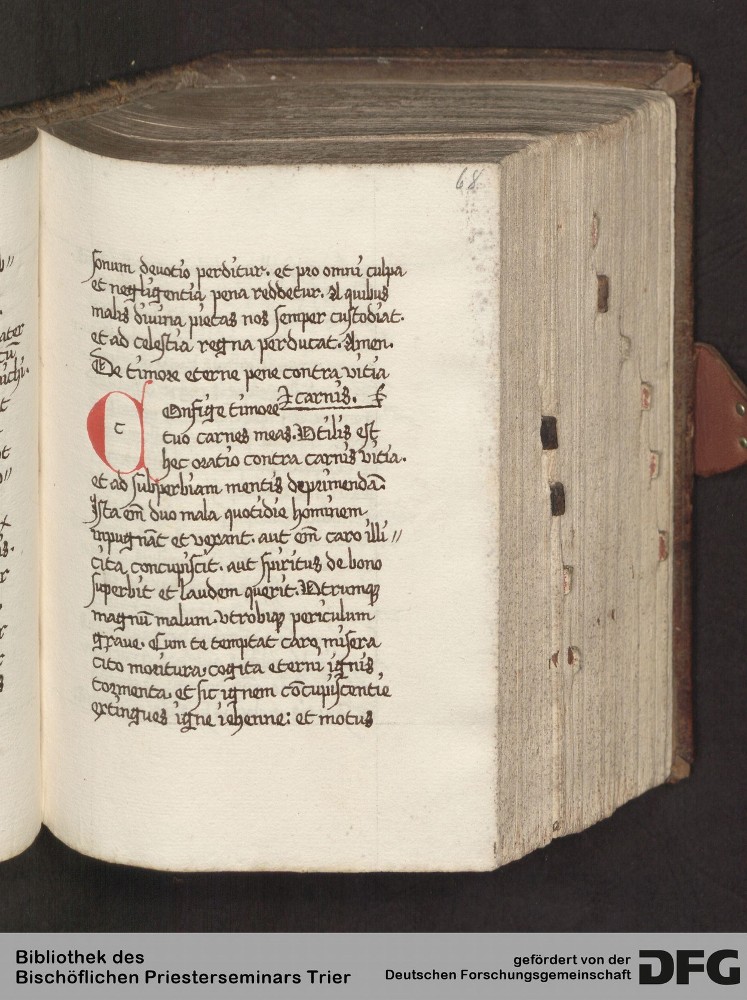 68
sonum deuotio perditur. et pro omni culpa
et negligentia pena reddetur. A quibus
malis diuina pietas nos semper custodiat.
et ad celestia regna perducat. Amen.
De timore eterne pene contra vitia
carnis.
C
c
Onfige timore
tuo carnes meas. Vtilis est
hec oratio contra carnis vitia.
et ad subperbiam mentis deprimendā.
Ista em̄ duo mala quotidie hominem
inpugnāt et vexant. aut em̄ caro illi//
cita concupiscit. aut spiritus de bono
superbit et laudem querit. Vtrumqꝫ
magnū malum. vtrobiqꝫ periculum
graue. Cum te temptat caro misera
cito moritura, cogita eterni ignis
tormenta, et sic ignem cōcupiscentie
extingues igne iehenne: et motus
Bibliothek des
Bischöflichen Priesterseminars Trier
gefördert von der
Deutschen Forschungsgemeinschaft
DFG